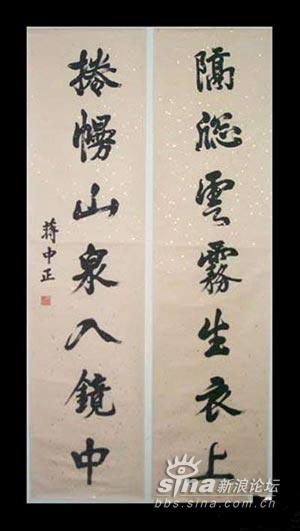 隔牕雲霧生衣上
捲幔山泉入鏡中
蔣中正
sina 新浪论坛
bbs.sina.com.cn